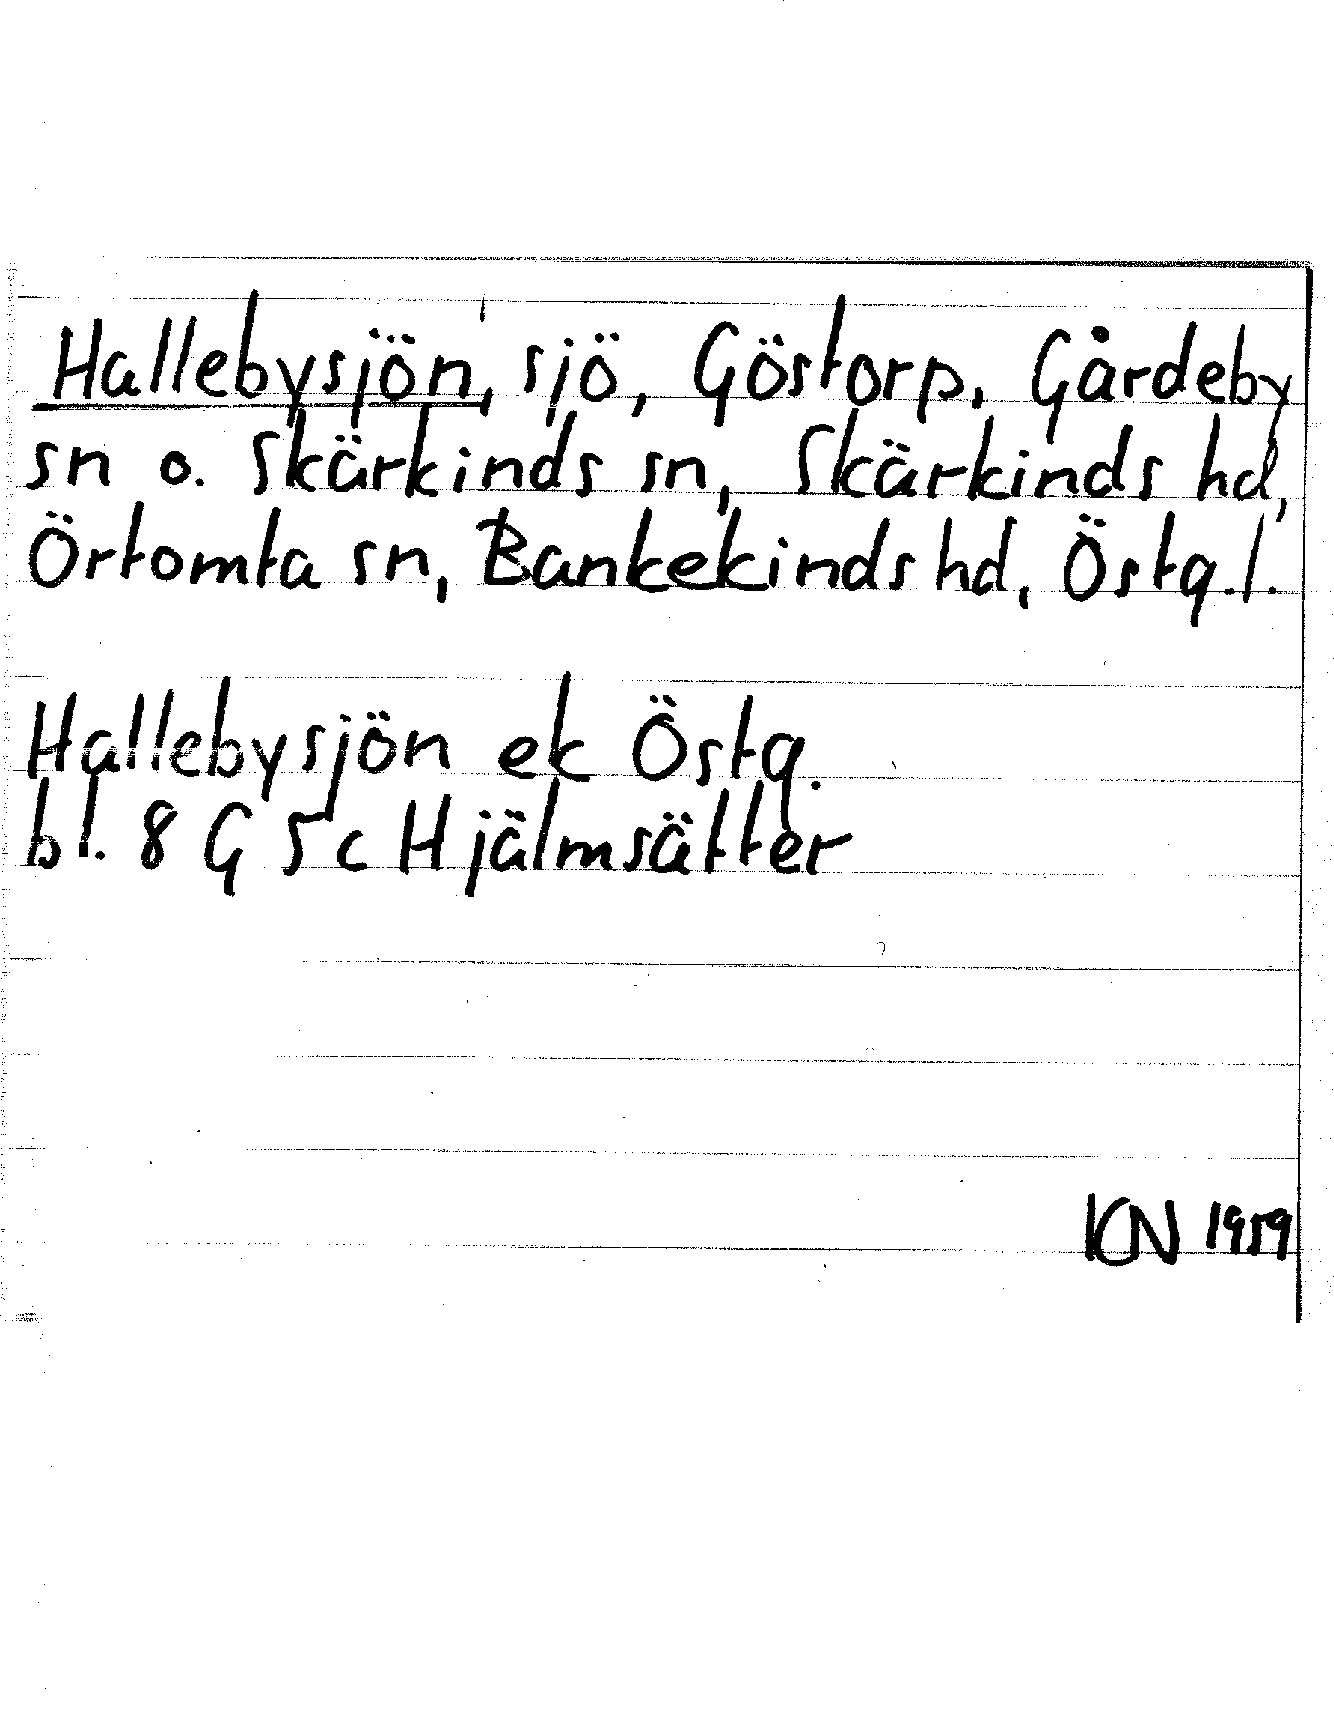 Hallebysjön, sjö, Göstorp, Gårdeby
sn o. Skärkinds sn, Skärkinds hd,
Örtomta sn, Bankekinds hd, Östg.l.
Hallebysjön ek Östg.
bl. 8 G 5 c Hjälmsätter
KN 1959